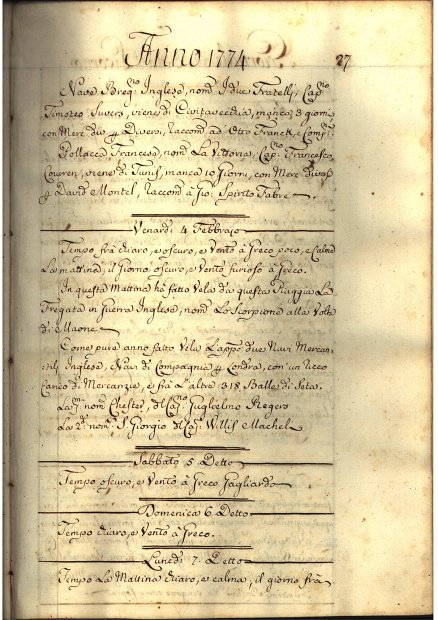 Anno 1774
27
Nave Breg.no Inglese, nom. I due Fratelli, Cap.no
Timoteo Suvers, viene di Civitavecchia, manca 3 giorni
con Merc. div.e p Diversi, Raccom. ad Otto Franck, e Comp.
Pollacca Francesa, nom. La Vittoria, Cap.no Francesco
viene di Tunis, manca 10 Giorni, con Merc. diverse
p David Montel, Raccom. à Gio. Spirito Fabre
Venardi 4 Febbraio
Tempo frà chiaro, e oscuro, e Vento à Greco poco, e Calma
La mattina; il Giorno oscuro, e Vento furioso à Greco.
In questa Mattina hà fatto Vela da questa Piaggia La
Fregata in Guerra Inglese, nom. Lo Scorpione alla Volta
di Maone
Come pure anno fatto Vela Lappo due Navi Mercan-
-tili Inglese, Navi di Compagnia p Londra, con un ricco
Carico di Mercanzie, e frà L'altre 318 Balle di Seta.
La p.ma nom. Chester, del Cap. Guglielmo Rogers
La 2.da nom. S. Giorgio del Cap. Willis Machel
Sabbato 5 Detto
Tempo oscuro, e Vento à Greco Gagliardo
Domenica 6 Detto
Tempo chiaro, e Vento à Greco.
Lunedi 7 Detto
Tempo La Mattina chiaro, e calma, il giorno frà